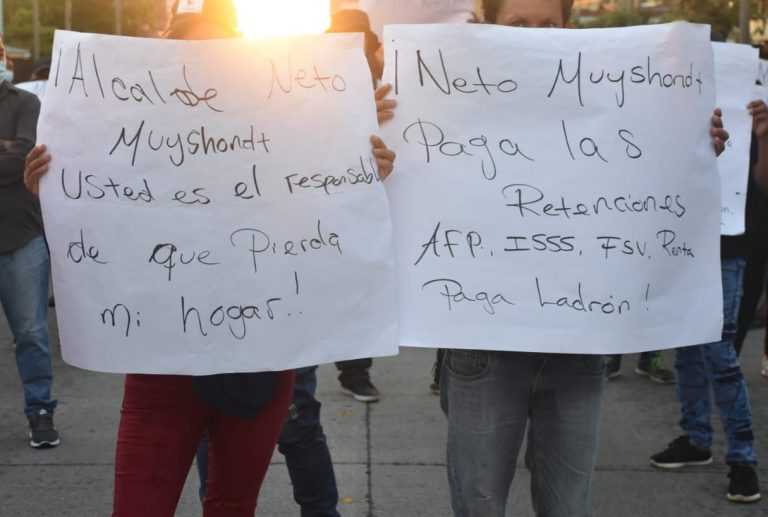 ¡Alcalde Neto
Muyshondt
Usted es el responsabl
de que Pierda
mi hogar!!
¡Neto Muyshondt
Paga las
Retenciones
AFP, ISSS, FSV, Renta
Paga Ladrón!